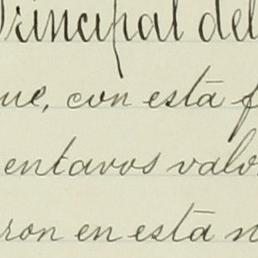 Principal del
que, con está f
entavos valo
ron en está n